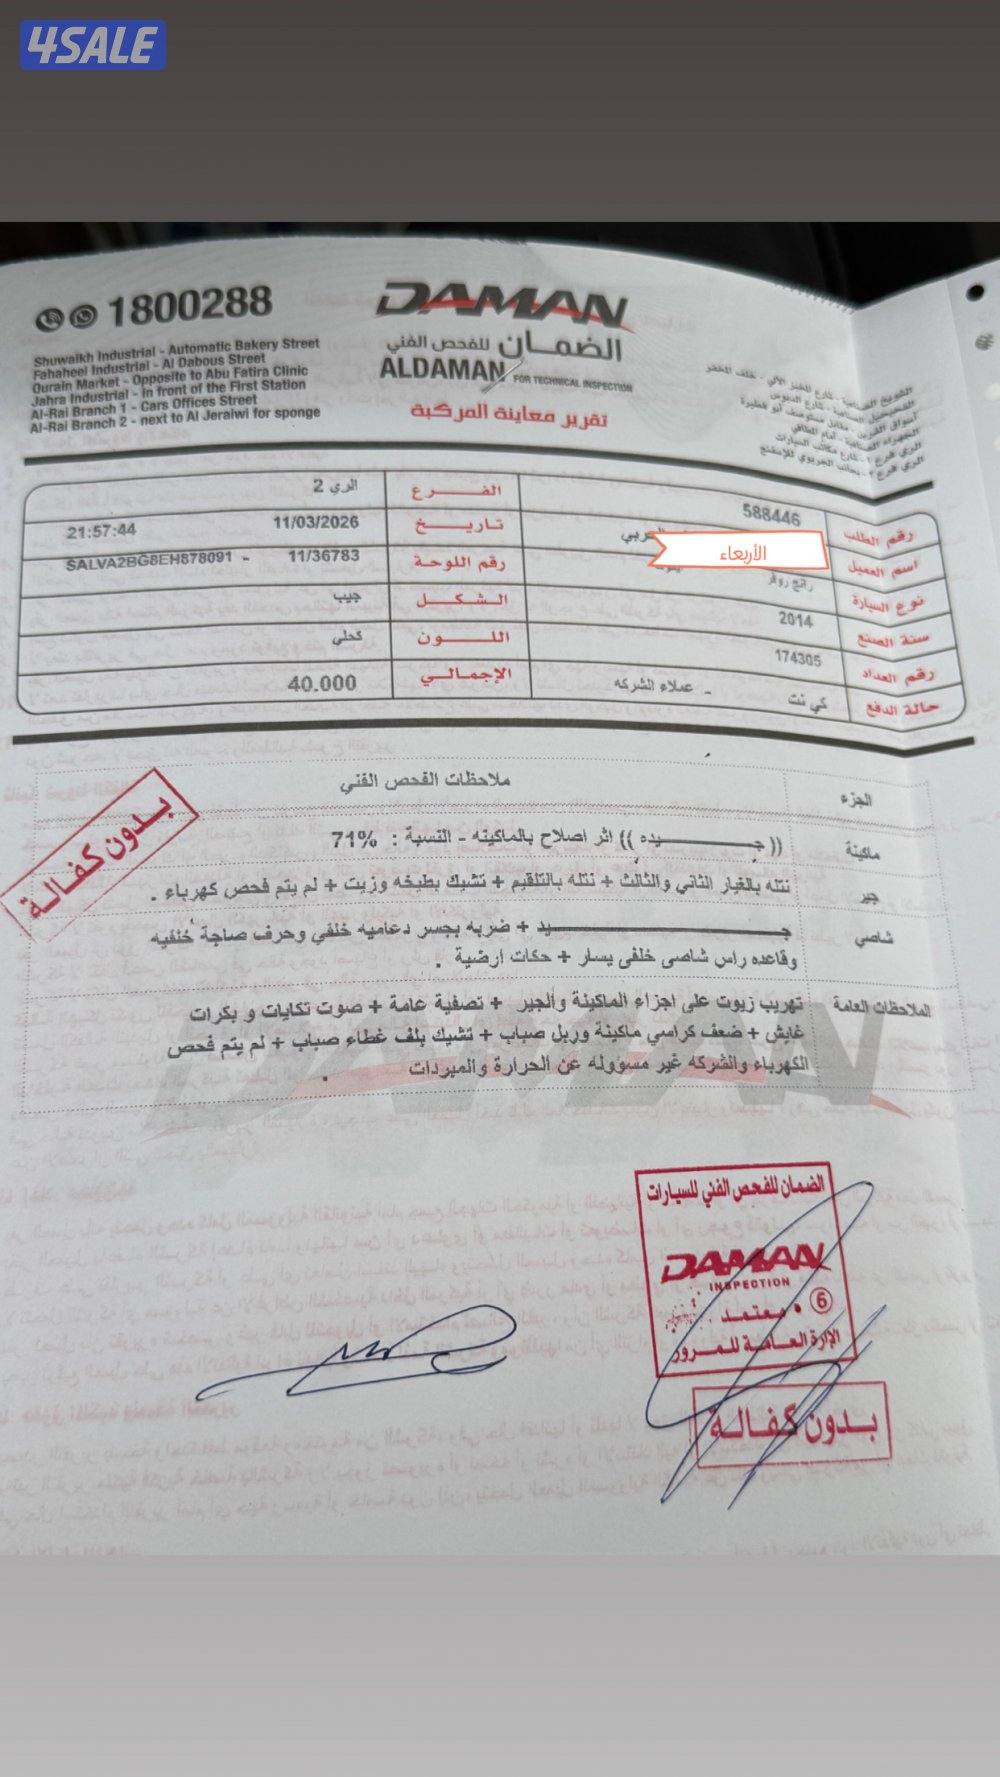 4SALE
1800288
Shuwaikh Industrial - Automatic Bakery Street
Fahaheel Industrial - Al Dabous Street
Qurain Market - Opposite to Abu Fatira Clinic
Jahra Industrial - in front of the First Station
Al-Rai Branch 1 - Cars Offices Street
Al-Rai Branch 2 - next to Al Jeraiwi for sponge
DAMAN
الضمان للفحص الفني
ALDAMAN FOR TECHNICAL INSPECTION
تقرير معاينة المركبة
الشويخ الصناعية - شارع المخبز الآلي - خلف المخفر
الفحيحيل الصناعية - شارع الدبوس
أسواق القرين - مقابل مستوصف أبو فطيرة
الجهراء الصناعية - أمام المطافي
الري فرع ١ - شارع مكاتب السيارات
الري فرع ٢ - بجانب الجريوي للإسفنج
رقم الطلب 588446 الفرع الري 2
اسم العميل الأربعاء تاريخ 11/03/2026 21:57:44
نوع السيارة رانج روفر رقم اللوحة 11/36783 - SALVA2BG8EH878091
سنة الصنع 2014 الشكل جيب
رقم العداد 174305 اللون كحلي
حالة الدفع كي نت - عملاء الشركه الإجمالي 40.000
الجزء ملاحظات الفحص الفني
بدون كفالة
ماكينة (( جـيده )) اثر اصلاح بالماكينه - النسبة : 71%
جير نتله بالغيار الثاني والثالث + نتله بالتلقيم + تشيك بطيخه وزيت + لم يتم فحص كهرباء .
شاصي جـيد + ضربه بجسر دعاميه خلفي وحرف صاجة خلفيه
وقاعده راس شاصى خلفى يسار + حكات ارضية .
الملاحظات العامة تهريب زيوت على اجزاء الماكينة والجير + تصفية عامة + صوت تكايات و بكرات
غايش + ضعف كراسي ماكينة وربل صباب + تشيك بلف غطاء صباب + لم يتم فحص
الكهرباء والشركه غير مسؤوله عن الحرارة والمبردات .
الضمان للفحص الفني للسيارات
DAMAN
INSPECTION
6 • معتمد
الإدارة العامة للمرور
بدون كفالة